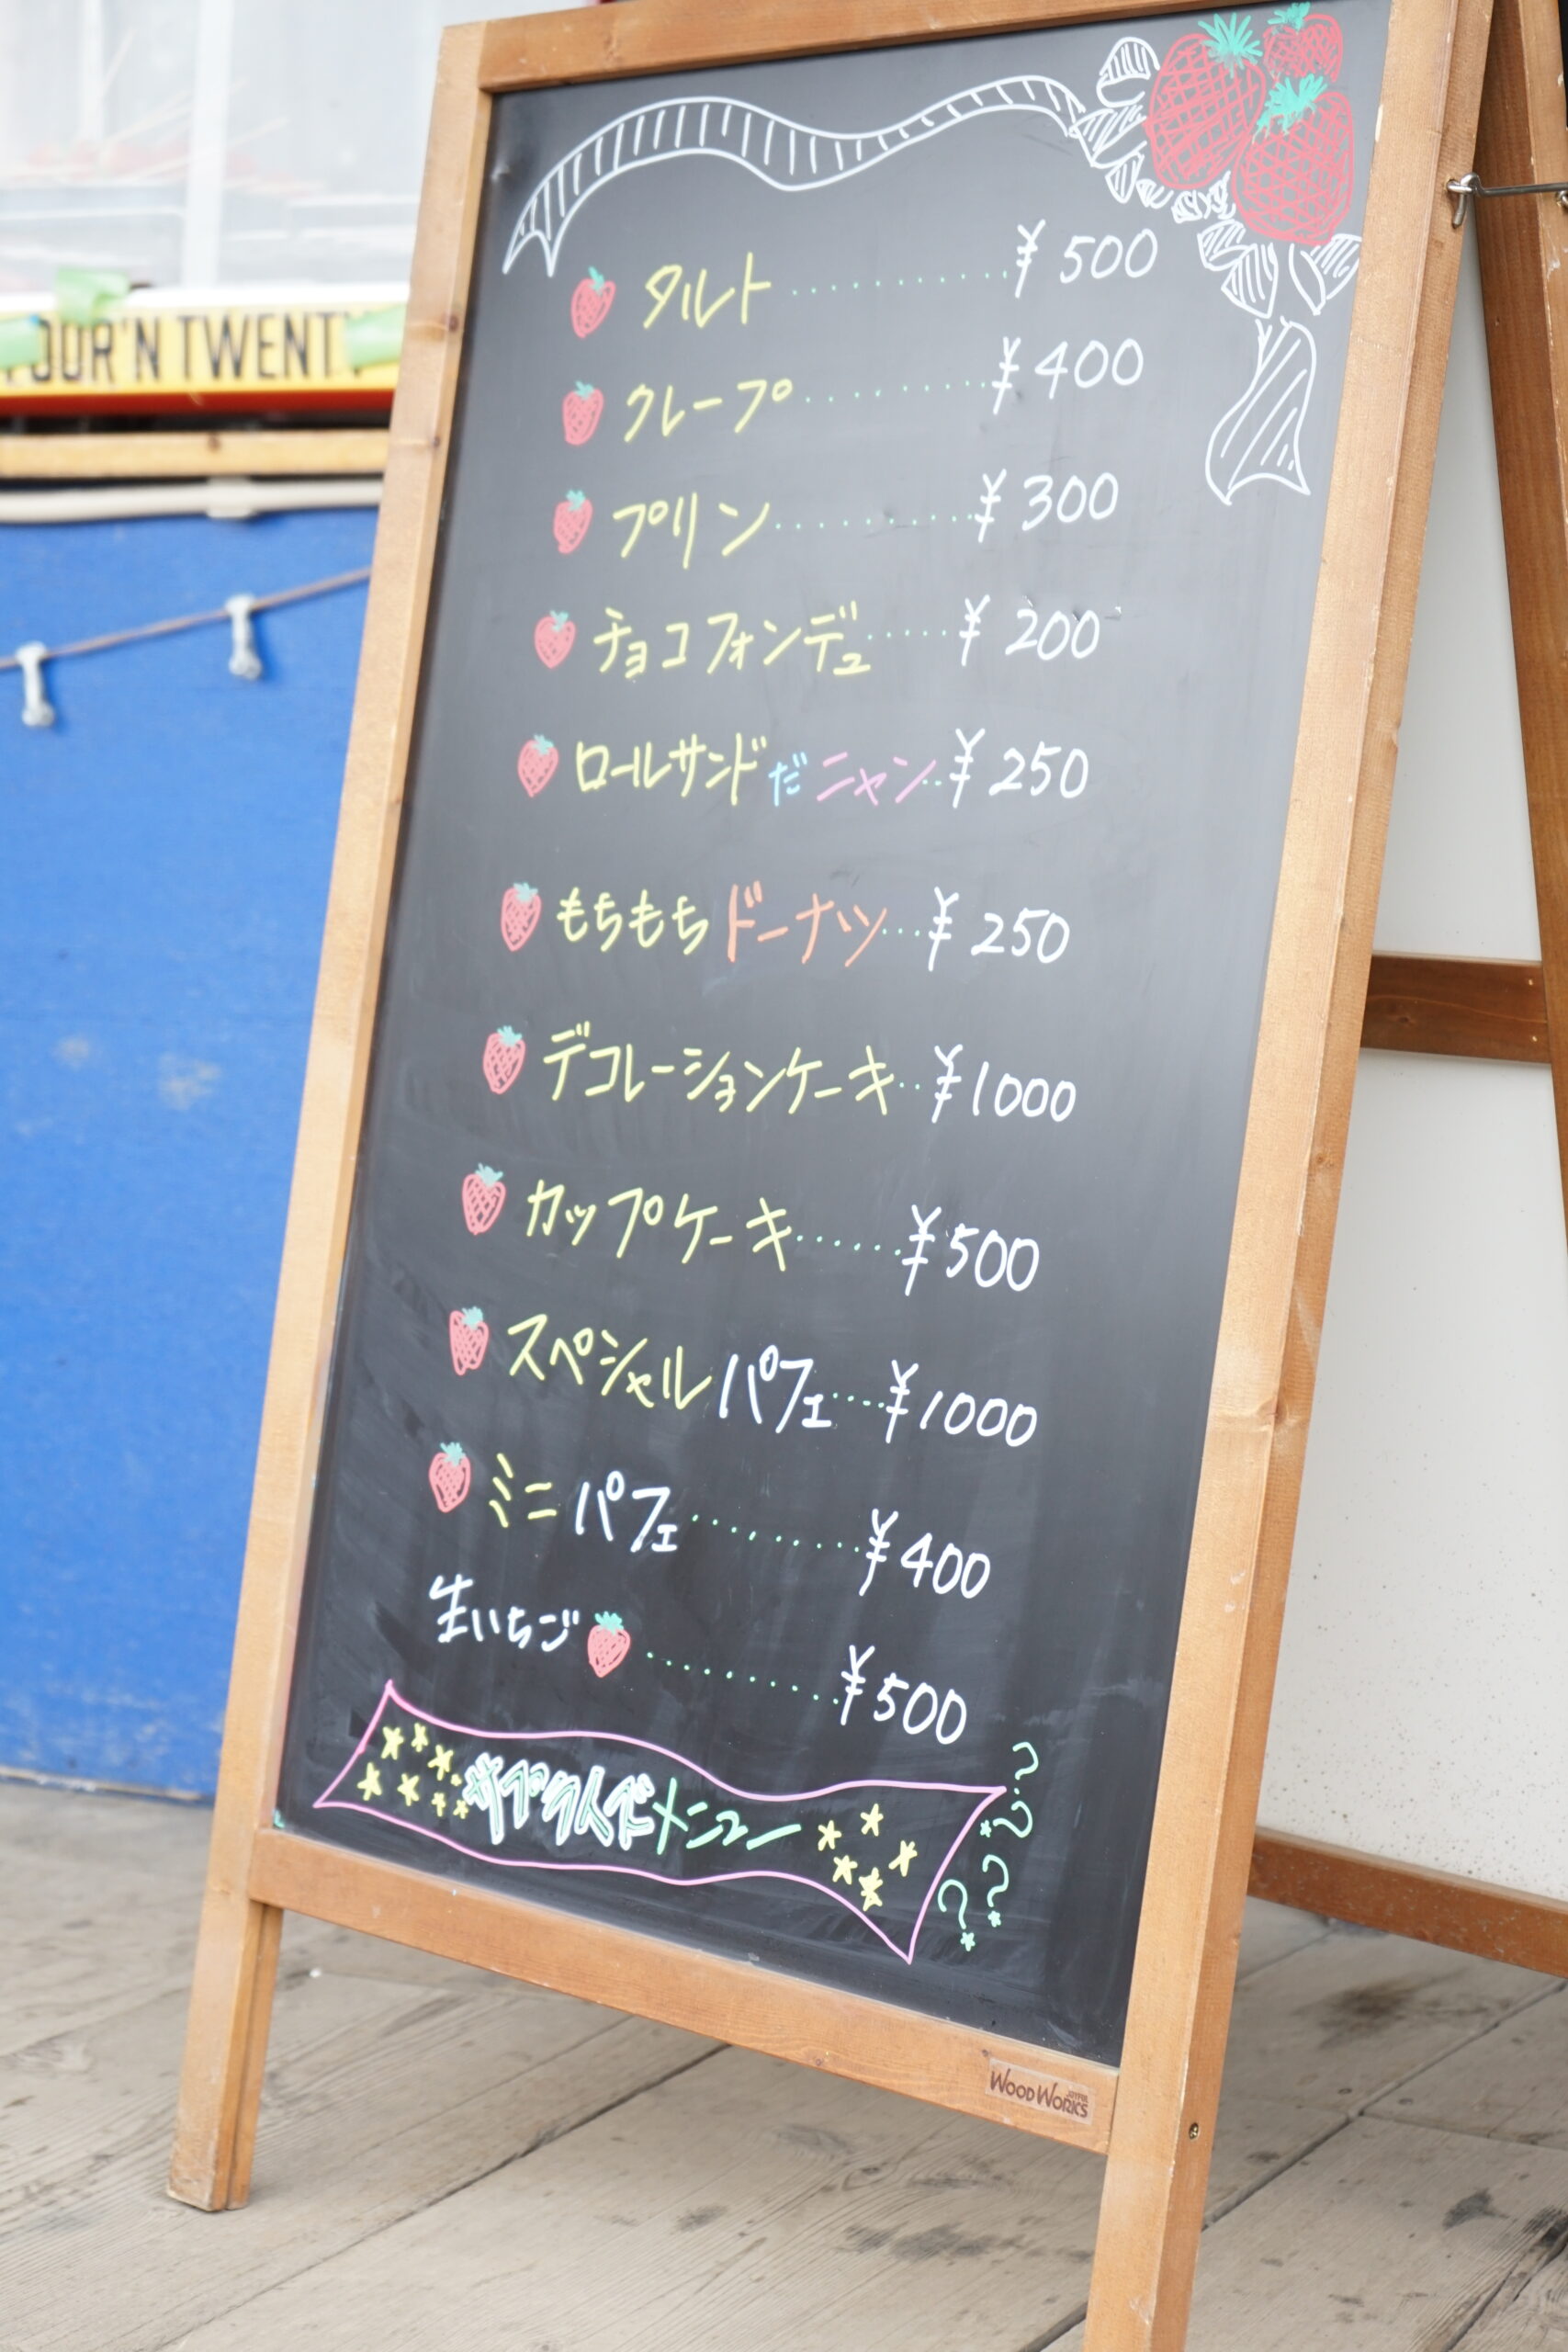 OUR'N TWENT
タルト..........¥500
クレープ..........¥400
プリン..........¥300
チョコフォンデュ.....¥200
ロールサンドだニャン..¥250
もちもちドーナツ...¥250
デコレーションケーキ..¥1000
カップケーキ......¥500
スペシャルパフェ....¥1000
ミニパフェ..........¥400
生いちご..........¥500
サプライズメニュー
????
WOOD WORKS